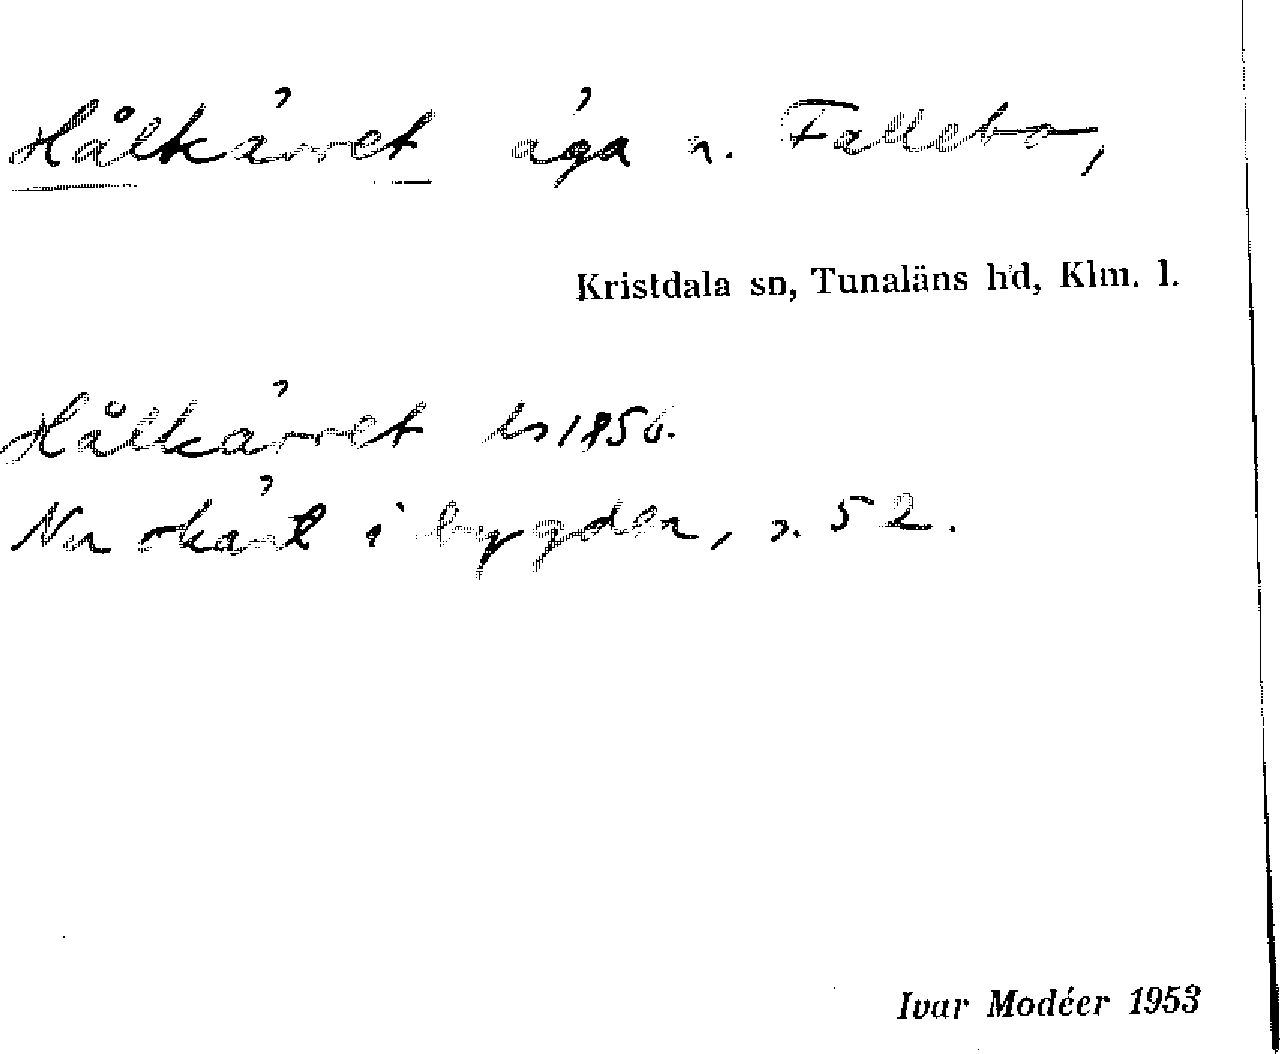 Hålkärret äga n. Fallebo,
Kristdala sn, Tunaläns hd, Klm. l.
Hålkärret ls 1856.
Nu skärt i bygden, s. 52.
Ivar Modéer 1953